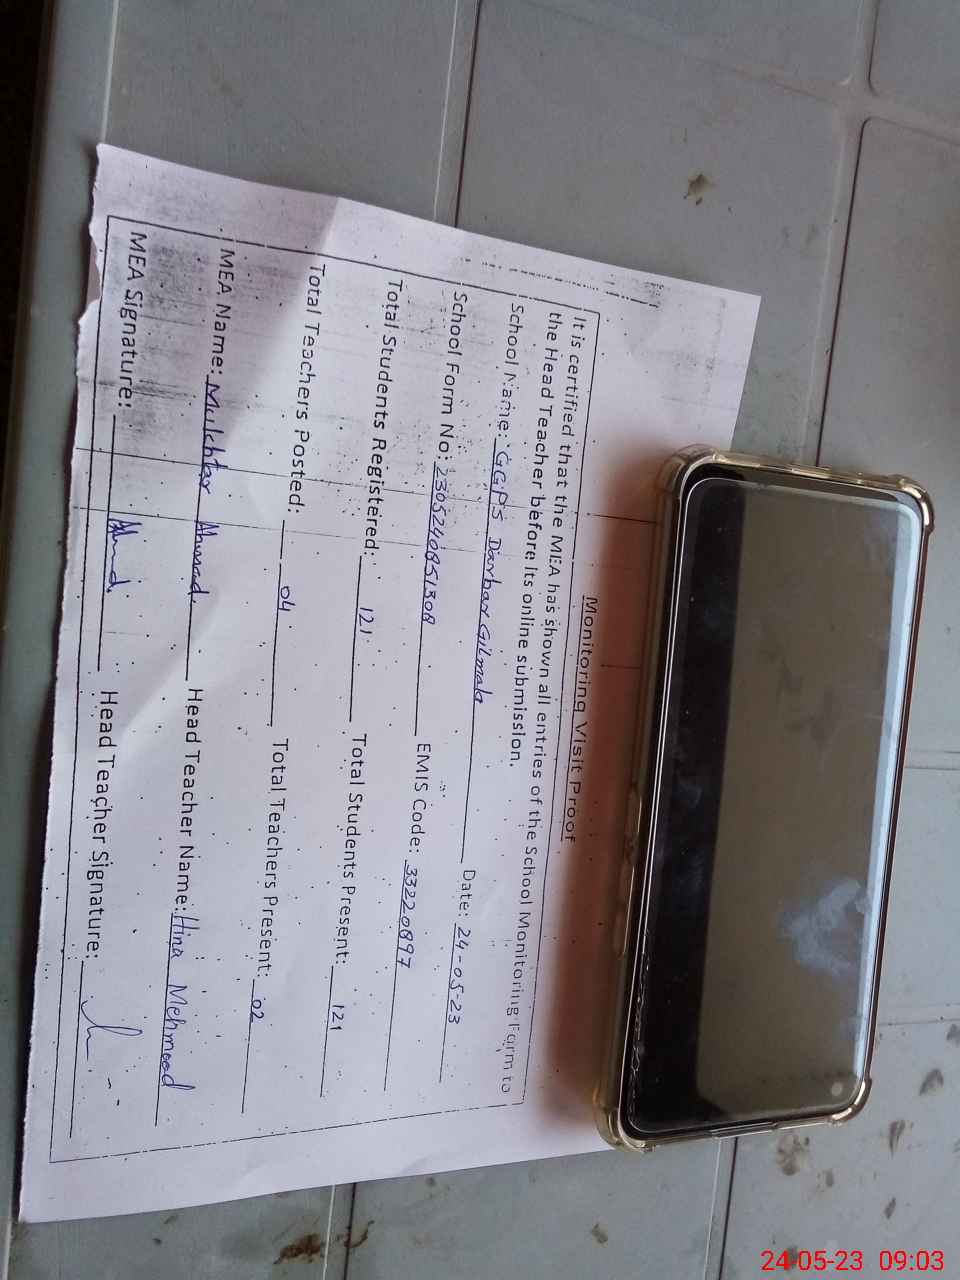 Monitoring Visit Proof
It is certified that the MEA has shown all entries of the School Monitoring Form to
the Head Teacher before its online submission.
School Name: GGPS Darbar Gilmala Date: 24-05-23
School Form No: 2305240851308 EMIS Code: 33220897
Total Students Registered: 121 Total Students Present: 121
Total Teachers Posted: 04 Total Teachers Present: 02
MEA Name: Mukhtar Ahmad. Head Teacher Name: Hina Mehmood
MEA Signature: Head Teacher Signature:
24-05-23 09:03